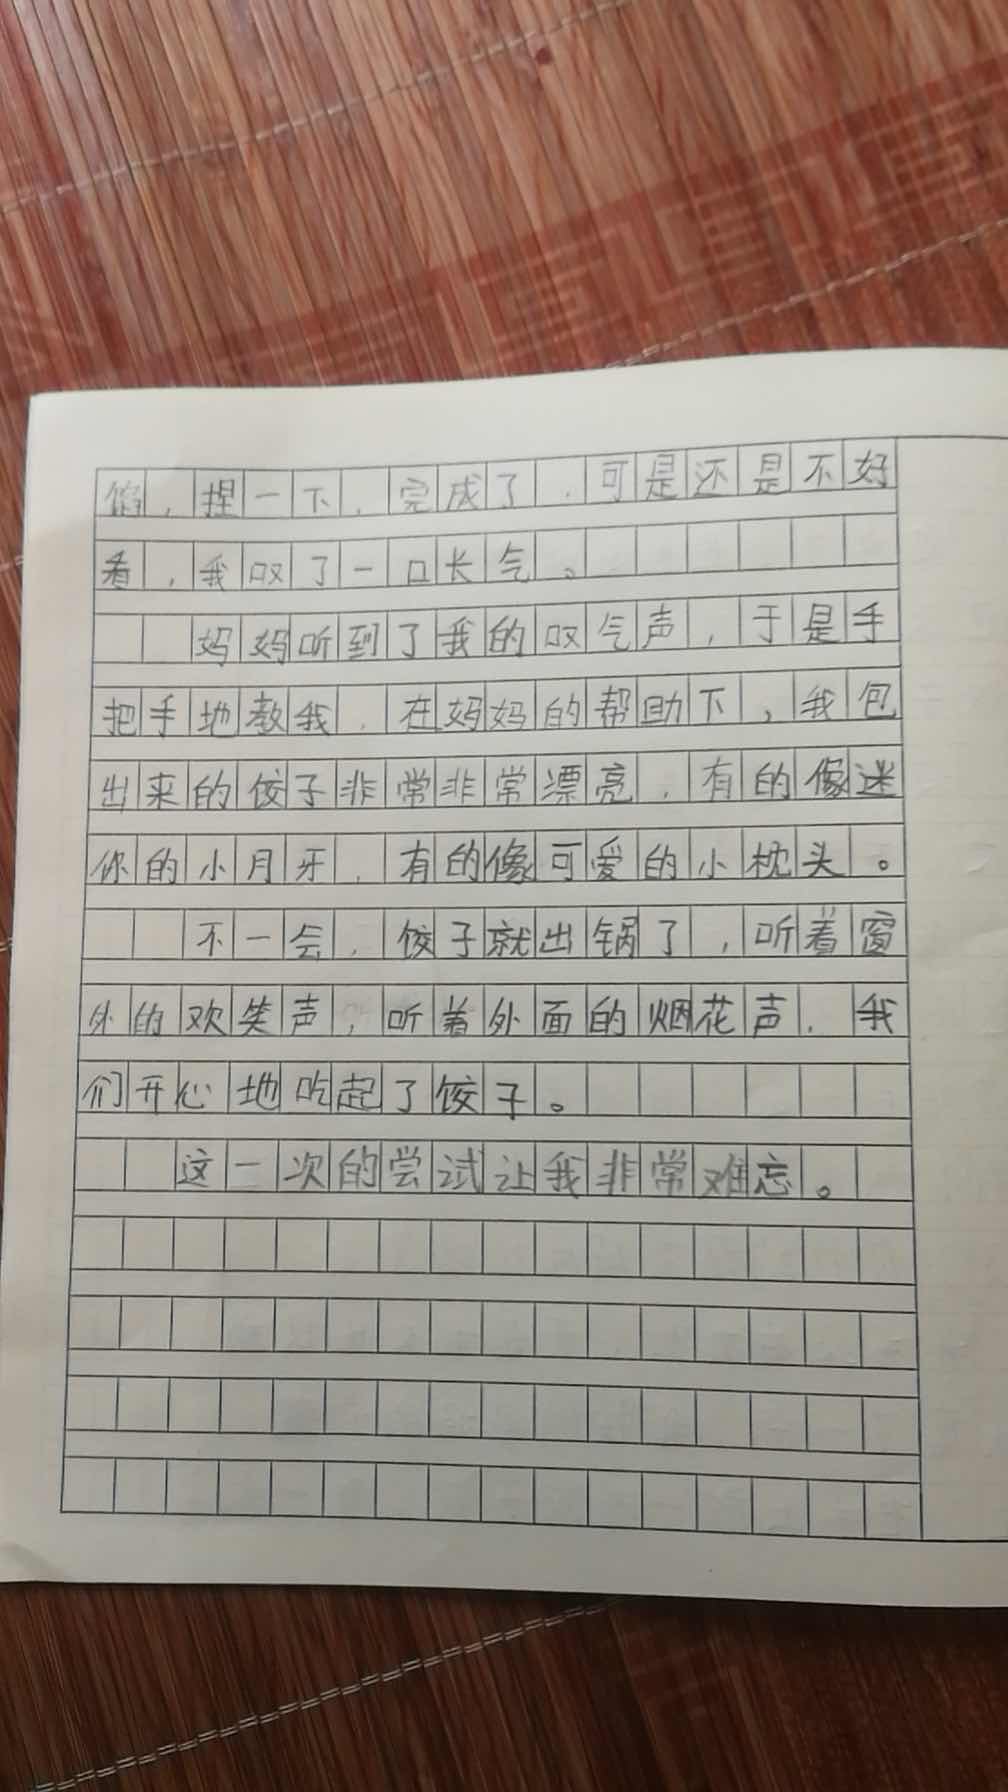 馅，捏一下，完成了，可是还是不好
看，我叹了一口长气。
妈妈听到了我的叹气声，于是手
把手地教我，在妈妈的帮助下，我包
出来的饺子非常非常漂亮，有的像迷
你的小月牙，有的像可爱的小枕头。
不一会，饺子就出锅了，听着窗
外的欢笑声，听着外面的烟花声，我
们开心地吃起了饺子。
这一次的尝试让我非常难忘。